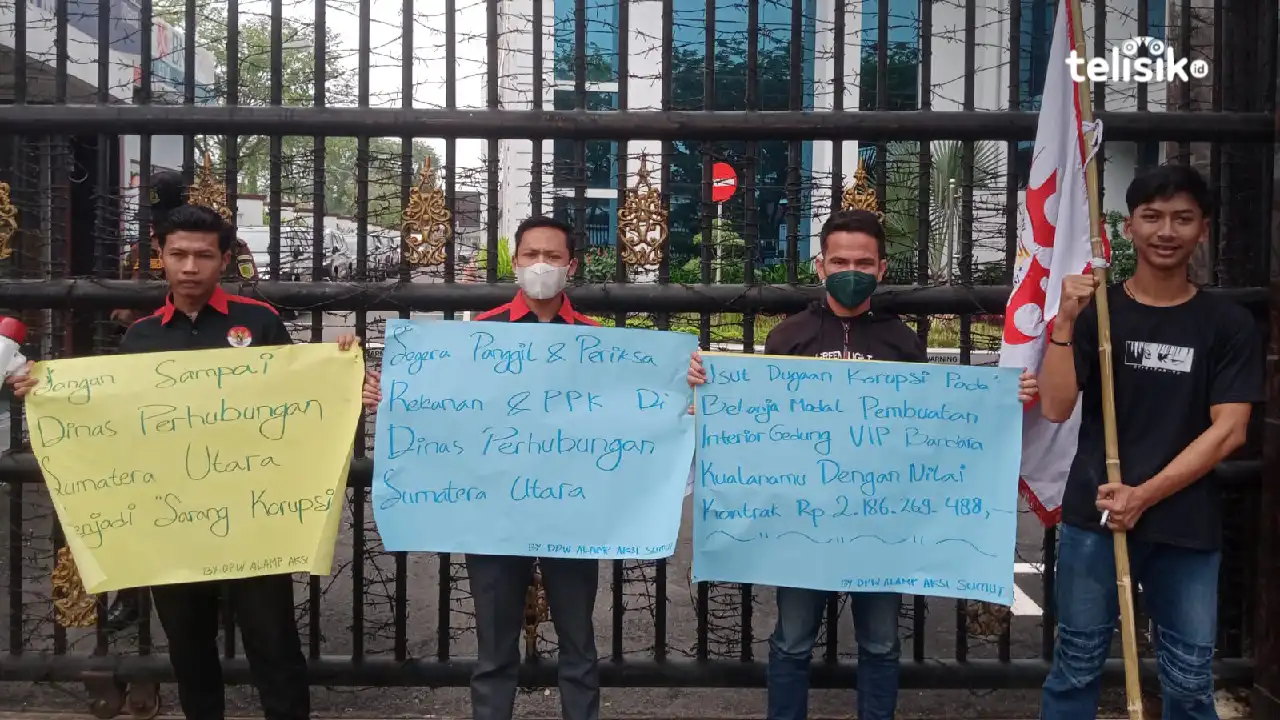 telisik.id
Jangan Sampai
Dinas Perhubungan
Sumatera Utara
Menjadi "Sarang Korupsi
BY DPW ALAMP AKSI
Segera Panggil & Periksa
Rekanan & PPK Di
Dinas Perhubungan
Sumatera Utara
BY DPW ALAMP AKSI SUMUT
Usut Dugaan Korupsi Pada
Belanja Modal Pembuatan
Interior Gedung VIP Bandara
Kualanamu Dengan Nilai
Kontrak Rp 2.186.269.488,-
BY DPW ALAMP AKSI SUMUT